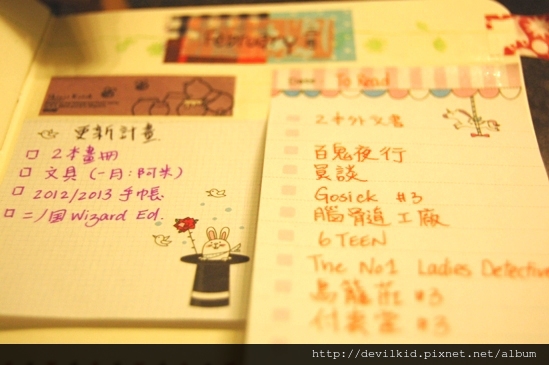 February
更新計畫
2本畫冊
文具(一月:阿米)
2012/2013手帳
二ノ国 Wizard Ed.
To Read
2本外文書
百鬼夜行
談
Gosick #3
腦髓工廠
6 TEEN
The No1 Ladies Detective
#3
#3
http://devilkid.pixnet.net/album